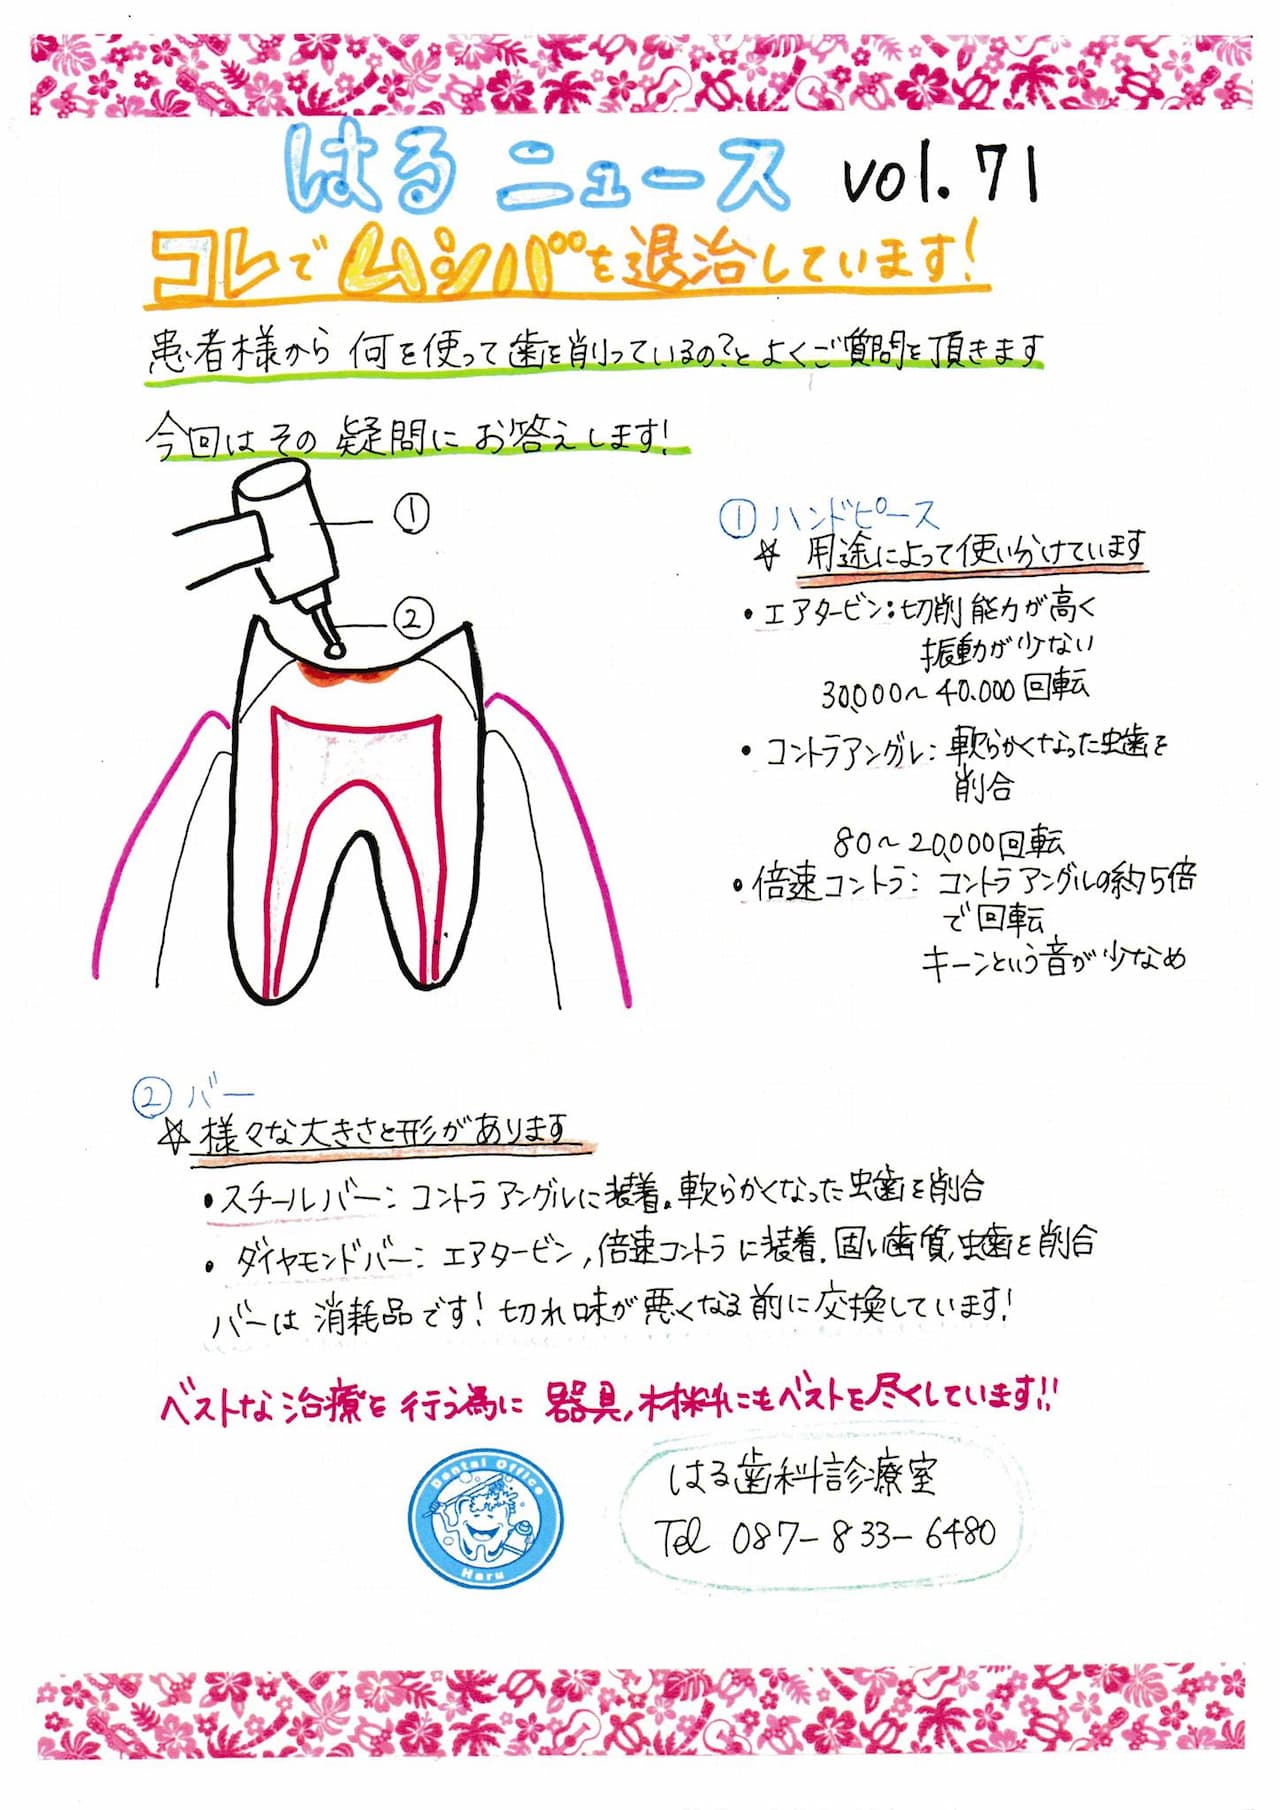 はる ニュース vol. 71
コレでムシバを退治しています!
患者様から 何を使って歯を削っているの?とよくご質問を頂きます
今回はその疑問にお答えします!
①
②
① ハンドピース
☆ 用途によって使い分けています
・エアタービン:切削能力が高く
振動が少ない
30,000～40.000回転
・コントラアングル:軟らかくなった虫歯を
削合
80～20,000回転
・倍速コントラ:コントラアングルの約5倍
で回転
キーンという音が少なめ
② バー
☆ 様々な大きさと形があります
・スチールバー:コントラアングルに装着。軟らかくなった虫歯を削合
・ダイヤモンドバー:エアタービン,倍速コントラに装着.固い歯質,虫歯を削合
バーは消耗品です!切れ味が悪くなる前に交換しています!
ベストな治療を行う為に 器具,材料にもベストを尽くしています!!
Dental Office
Haru
はる歯科診療室
Tel 087-833-6480